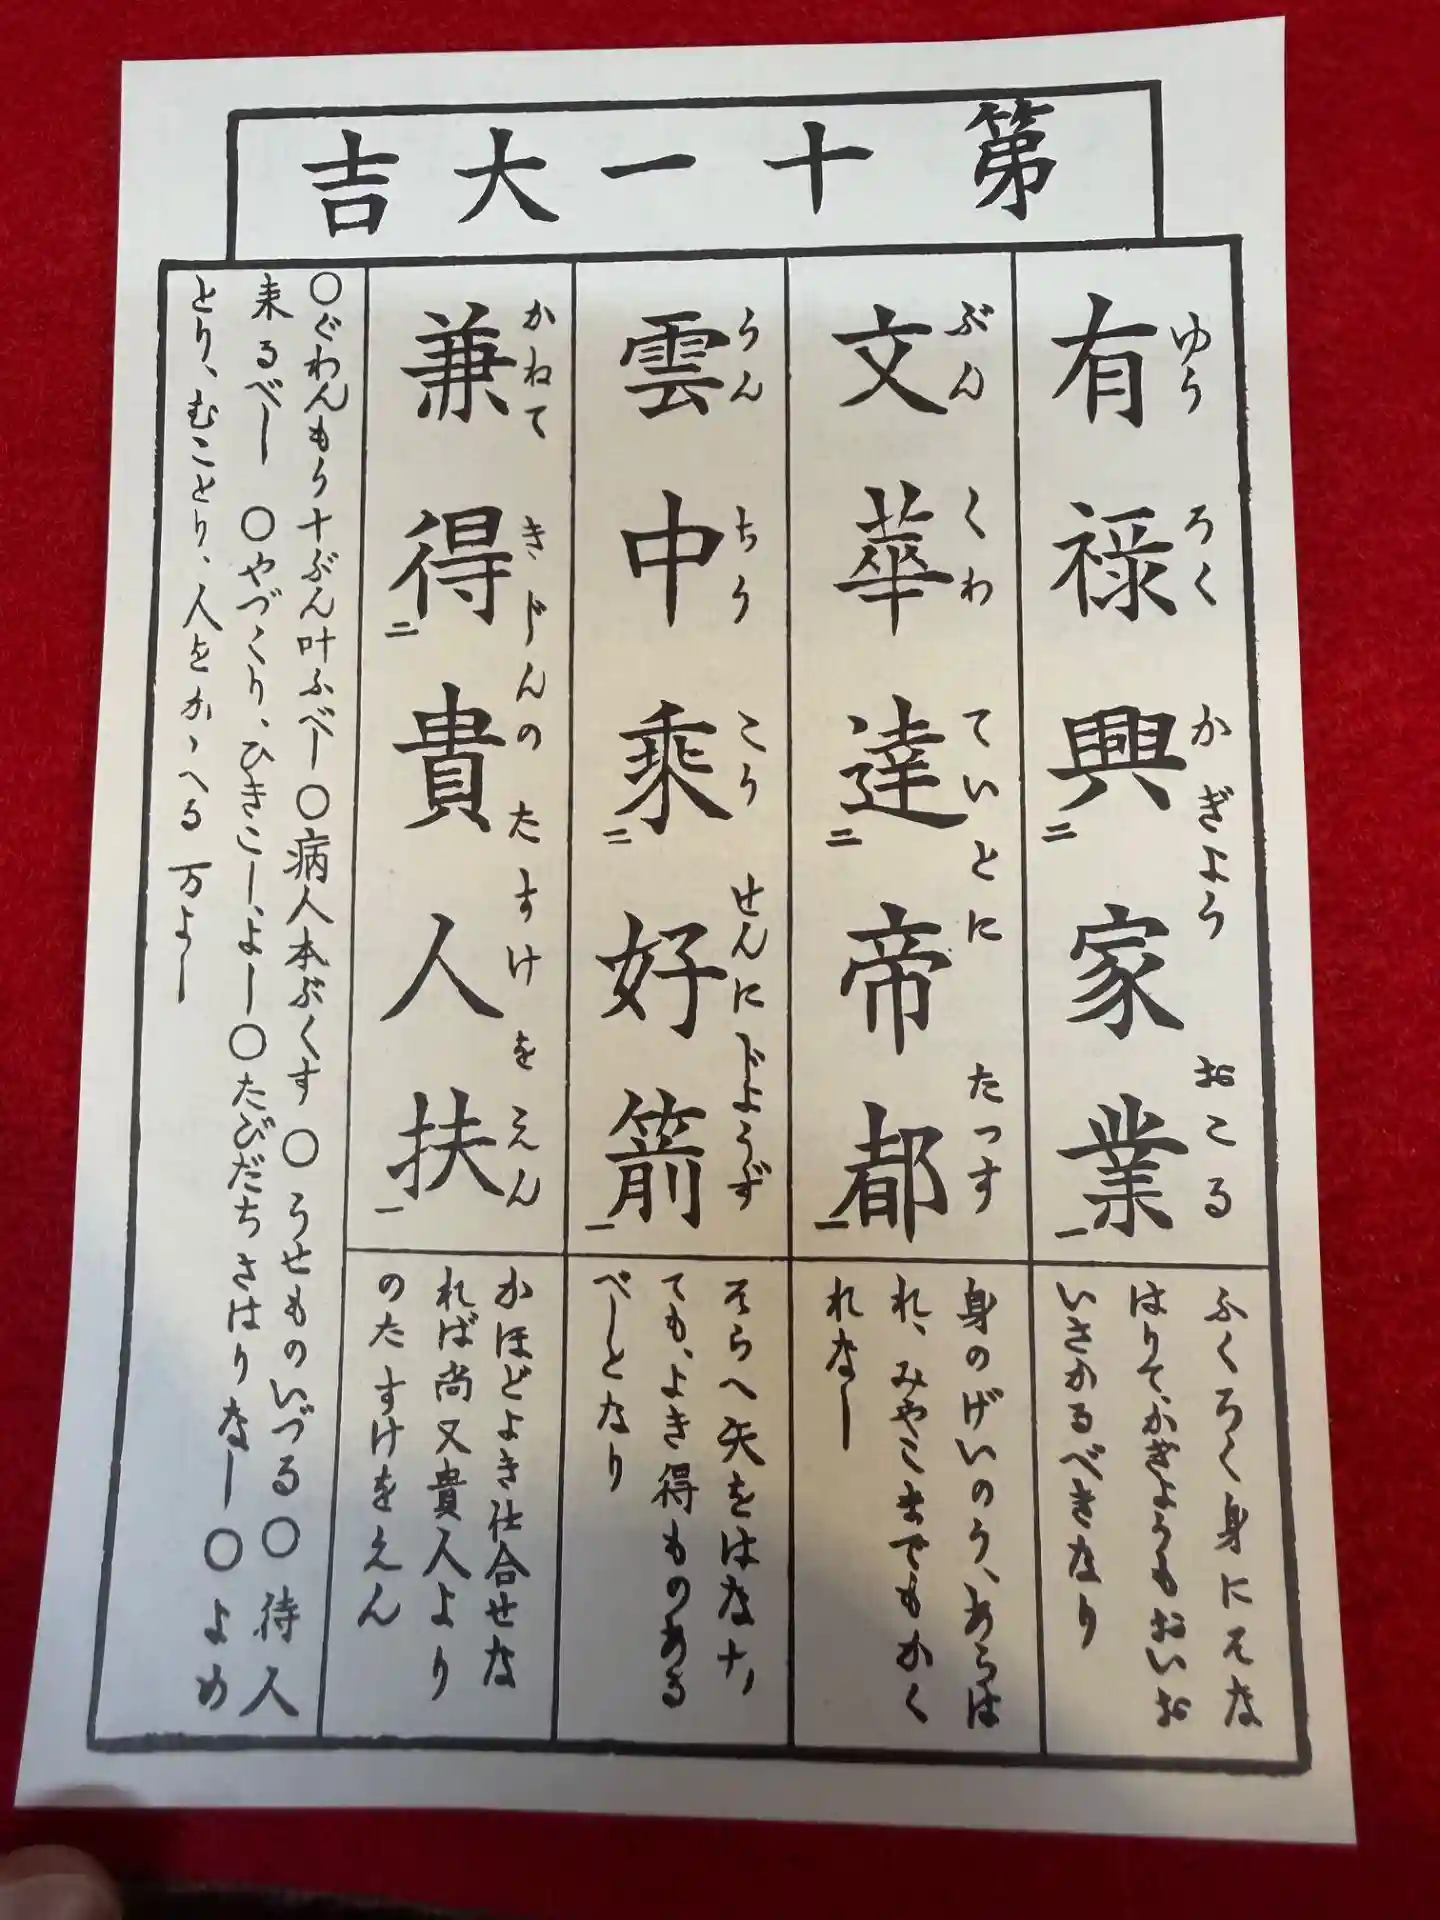 第十一大吉
有禄興二家業一
ゆうろくかぎようおこる
ふくろく身にそな
はりて、かぎようもおいお
いさかるべきなり
文華達二帝都一
ぶんくわていとにたつす
身のげいのう、あらは
れ、みやこまでもかく
れなし
雲中乘二好箭一
うんちうこうせんにじようず
そらへ矢をはなす、
ても、よき得ものある
べしとなり
兼得二貴人扶一
かねてきじんのたすけをえん
かほどよき仕合せな
れば尚又貴人より
のたすけをえん
〇ぐわんもう十ぶん叶ふべし〇病人本ぶくす〇うせものいづる〇待人
来るべし〇やづくり、ひきこし、よし〇たびだちさはりなし〇よめ
とり、むことり、人をかゝへる万よし